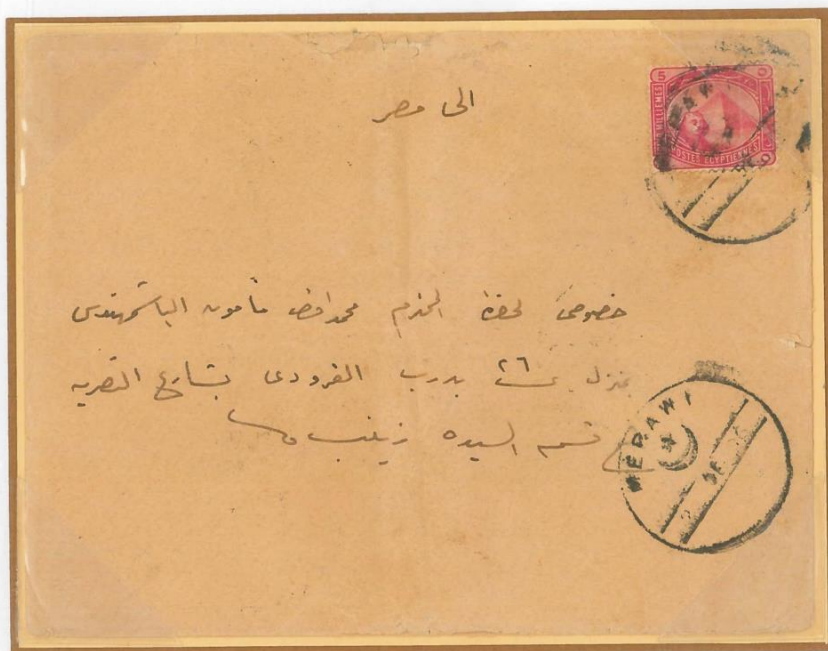 الى مصر
5
5 MILLIEMES
POSTES EGYPTIENNES
MERAWI
خصوصى لحضرة المحترم مأمون الباشمهندس
بمنزل ٢٦ بدرب القرودى بشارع النصريه
قسم السيده زينب
MERAWI